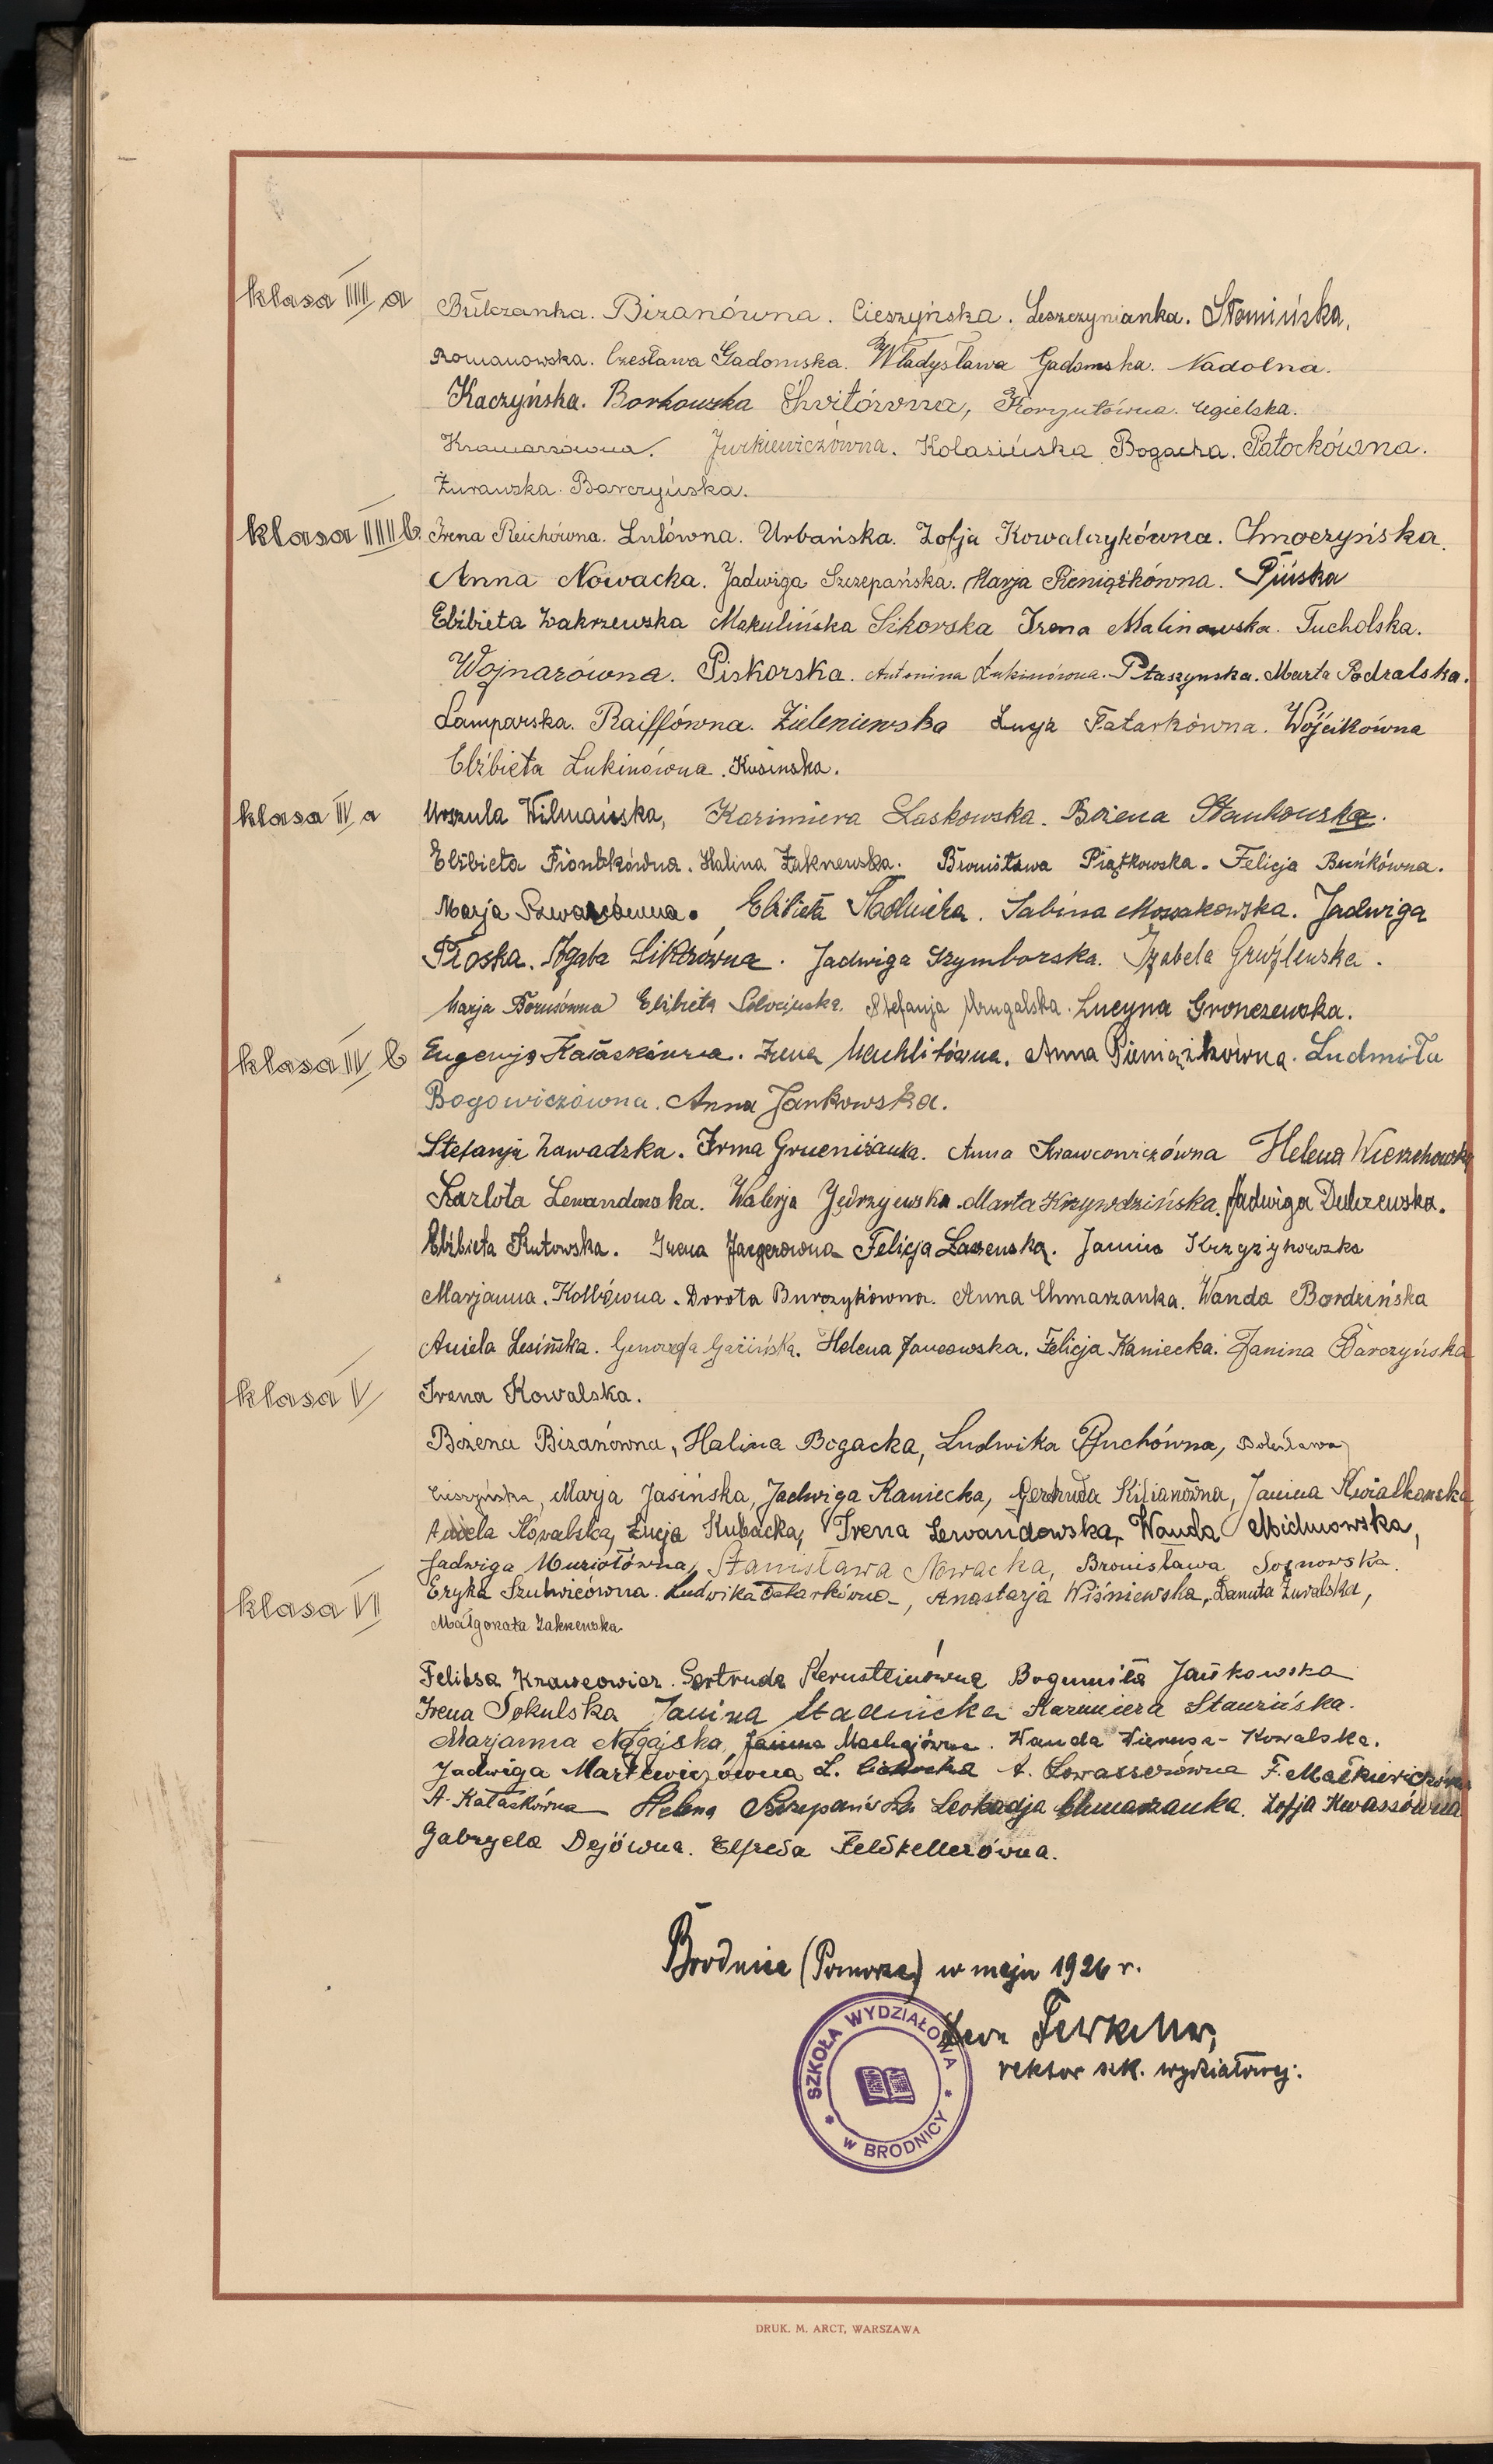 klasa III a
Bizanówna. Cieszyńska. Leszczynianka. Słomińska,
Romanowska. Czesława Gadomska. Władysława Gadomska. Nadolna.
Kaczyńska. Borkowska Ugielska.
Kramarzówna. Jurkiewiczówna. Kolasińska Bogacka. Patockówna.
Żurawska. Barczyńska.
klasa III b Irena Reichówna. Lulówna. Urbańska. Zofja Kowalczykówna. Chmoczyńska.
Anna Nowacka. Jadwiga Szczepańska. Marja Pieniążkówna. Pińska
Elżbieta Zakrzewska Makulińska Sikorska Irena Malinowska. Tucholska.
Wojnarówna. Piskorska. Antonina Łukinówna. Ptaszynska. Marta Podralska.
Lamparska. Raiffówna. Zieleniewska Łucja Tatarkówna. Wójcikówna
Elżbieta Łukinówna. Kusinska.
klasa IV a Urszula Wilmańska, Kazimiera Laskowska. Bożena Stankowska.
Elżbieta Piontkówna. Halina Zakrzewska. Bronisława Piątkowska. Felicja Buńkówna.
Marja Szwarcówna. Elżbieta Stadnicka. Sabina Mossakowska. Jadwiga
Płoska. Agata Sikorówna. Jadwiga Szymborska. Izabela Gruźlewska.
Marja Elżbieta Stefanja Mrugalska. Lucyna Gronczewska.
klasa IV b Eugenja Kałaskówna. Irena Anna Pieniążkówna. Ludmiła
Bogowiczówna. Anna Jankowska.
Stefanja Zawadzka. Irma Grueniżanka. Anna Krawcowiczówna Helena Wierzchowska
Karlota Lewandowska. Walerja Jędrzejewska. Marta Krzywdzińska. Jadwiga Dulczewska.
Elżbieta Rutowska. Irena Jaegerówna Felicja Laszewska. Janina Krzyżykowska
Marjanna. Kolbówna. Dorota Burczykówna. Anna Chmarzanka. Wanda Bardzińska
Aniela Lesińska. Genowefa Gazińska. Helena Jancowska. Felicja Kaniecka. Janina Barczyńska
klasa V Irena Kowalska.
Bożena Bizanówna, Halina Bogacka, Ludwika Puchówna, Bolesława
Cieszyńska, Marja Jasińska, Jadwiga Kaniecka, Gertruda Kilianówna, Janina Kwiatkowska
Aniela Kowalska, Łucja Kubacka, Irena Lewandowska, Wanda Michnowska,
Jadwiga Muziołówna, Stanisława Nowacka, Bronisława Sosnowska.
klasa VI Eryka Szulwicówna. Ludwika Tatarkówna, Anastazja Wiśniewska, Danuta Żuralska,
Małgorzata Zakrzewska.
Feliksa Krawcowicz. Gertruda Bogumiła Jankowska
Irena Sokulska Janina Stadnicka Kazimiera Stanzińska.
Marjanna Nagajska, Janina Machajówna. Wanda Wierusz-Kowalska.
Jadwiga Martewiczówna L. A. Lowasserówna F. Małkiewiczówna
A. Kałaskówna Helena Szczepańska Leokadja Chmarzanka. Zofja Kwassówna
Gabryela Dejówna. Elfreda Feldkellerówna.
Brodnica (Pomorze) w maju 1926 r.
rektor szk. wydziałowej.
SZKOŁA WYDZIAŁOWA
w BRODNICY
DRUK. M. ARCT, WARSZAWA